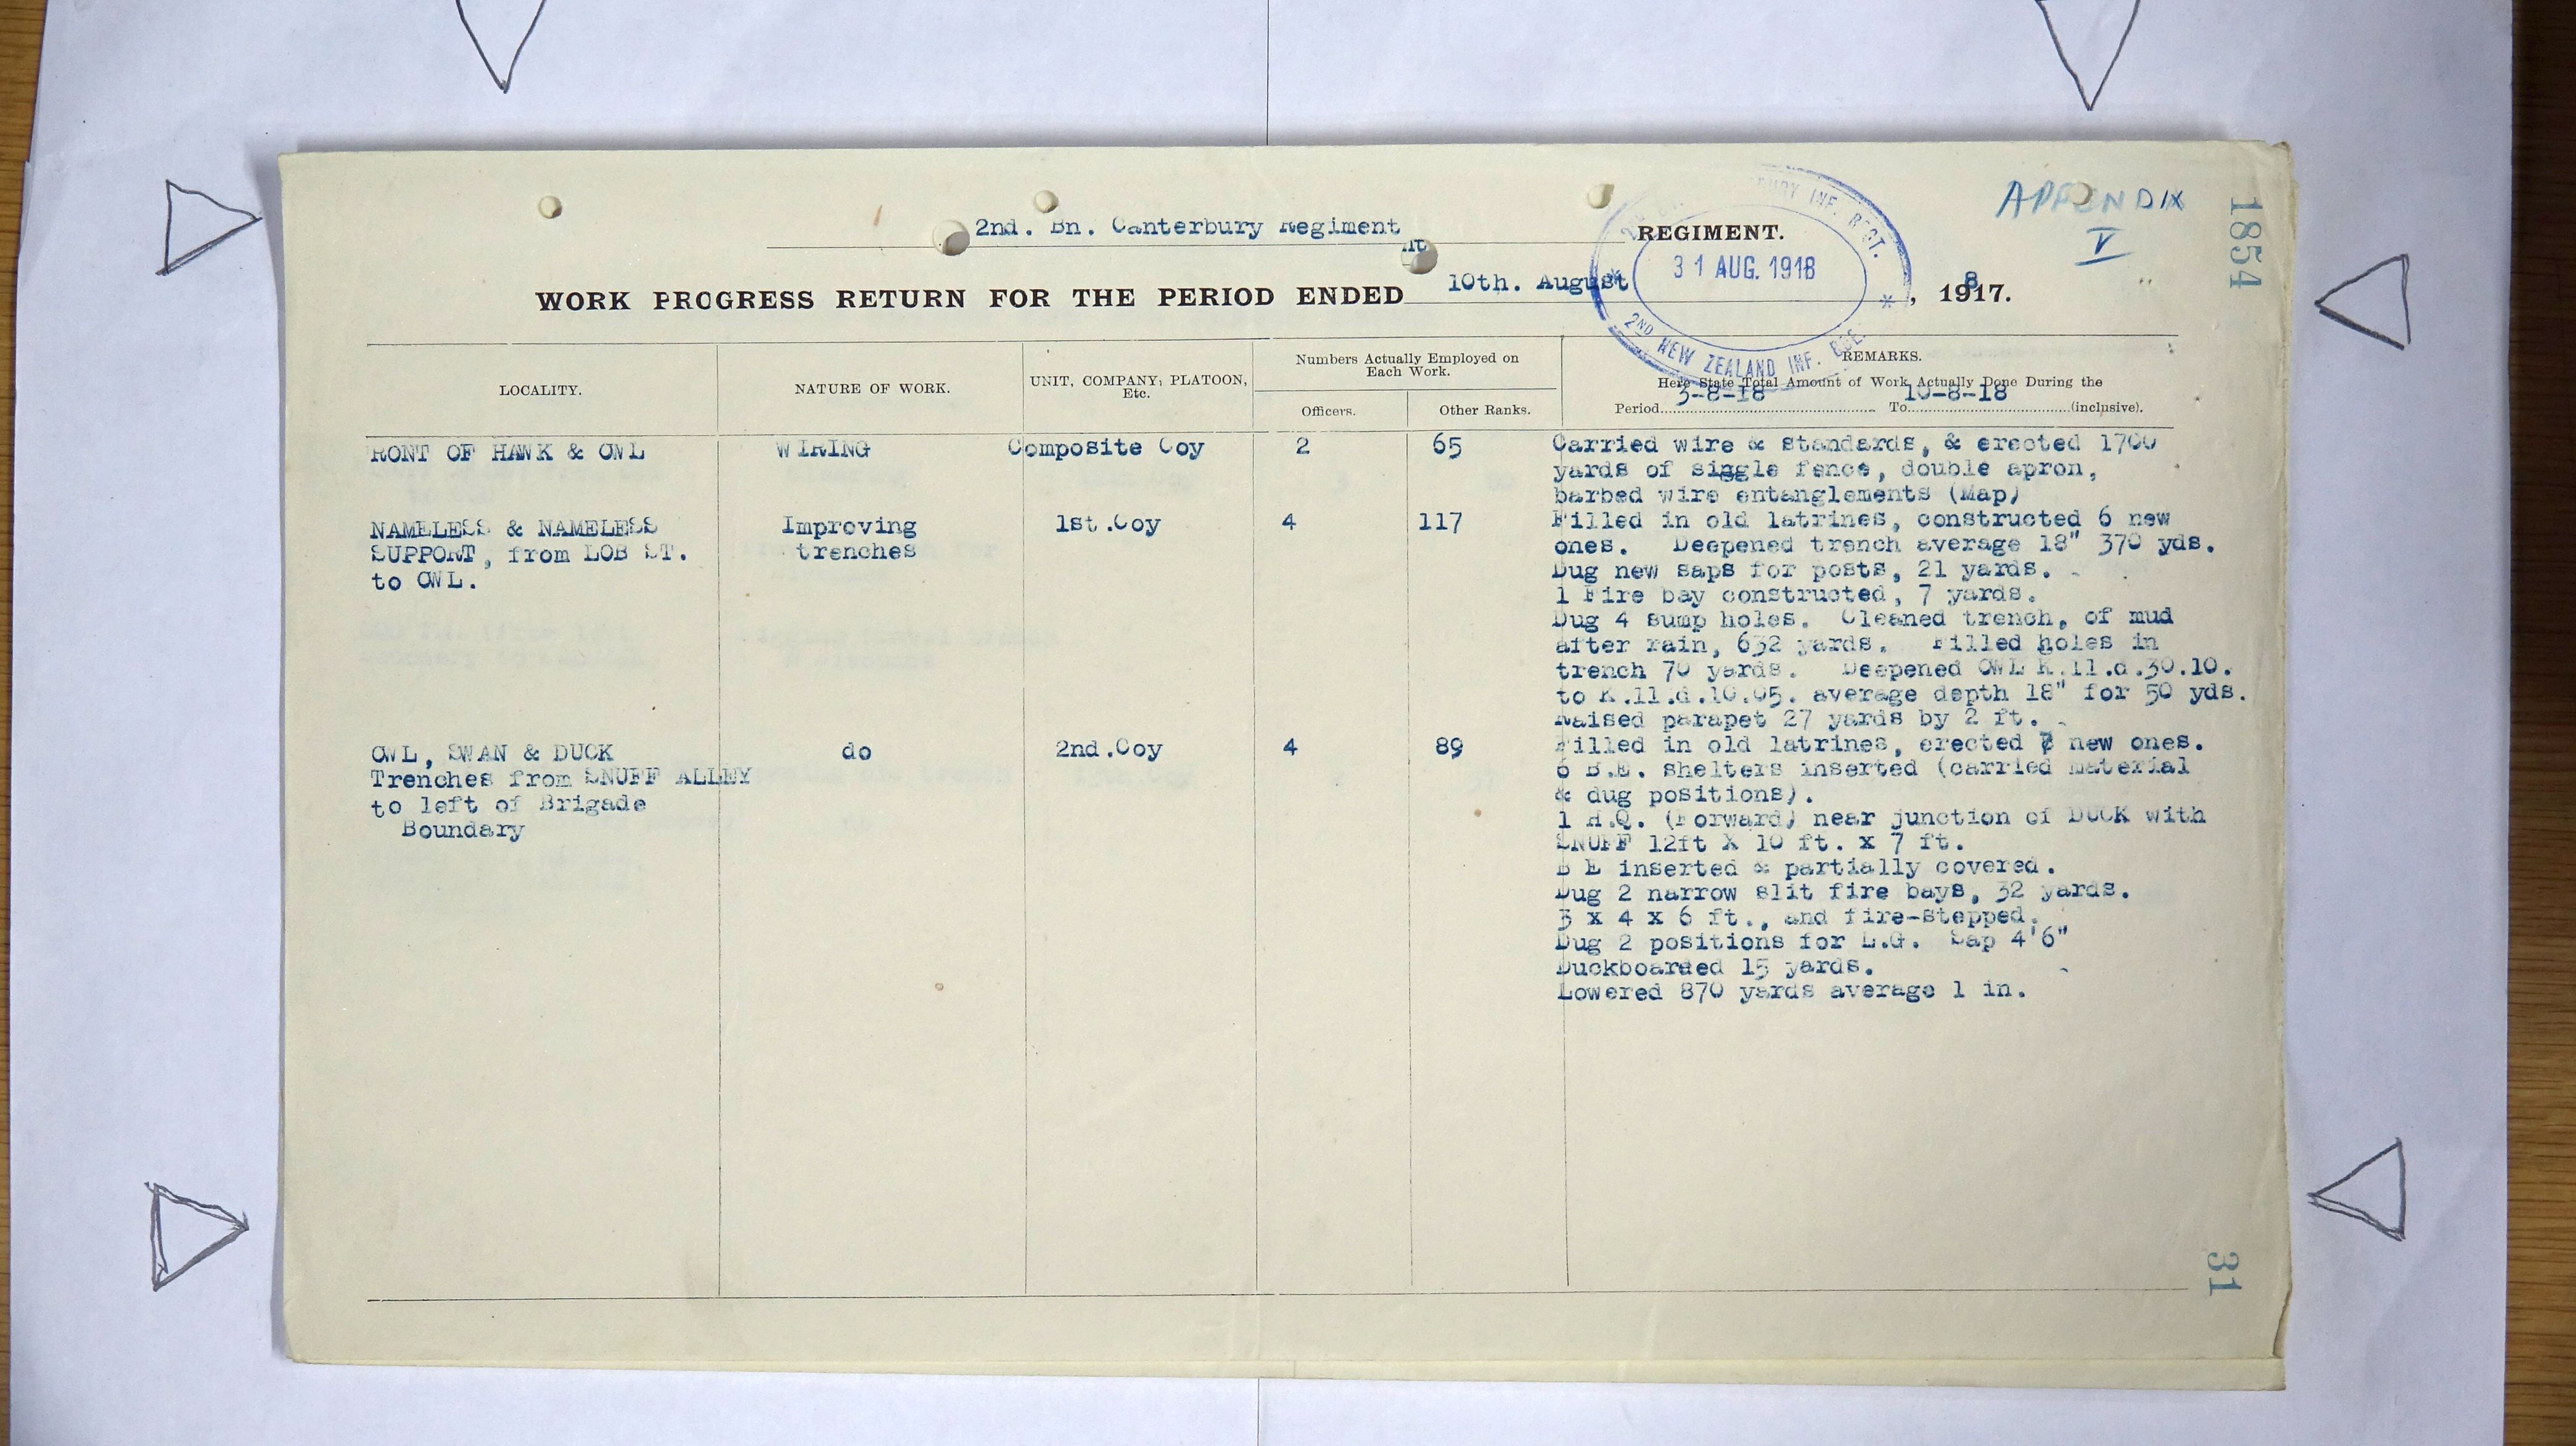 APPENDIX
V
1854
2nd. Bn. Canterbury Regiment REGIMENT.
nt
INF. REGT.
31 AUG. 1918
2ND NEW ZEALAND INF. BDE.
WORK PROGRESS RETURN FOR THE PERIOD ENDED 10th. August, 19187.
LOCALITY. NATURE OF WORK. UNIT, COMPANY, PLATOON, Etc. Numbers Actually Employed on Each Work. REMARKS.
Officers. Other Ranks. Here State Total Amount of Work Actually Done During the
Period 3-8-18 To 10-8-18 (inclusive).
RONT OF HAWK & OWL WIRING Composite Coy 2 65 Carried wire & standards, & erected 1700
yards of single fence, double apron,
barbed wire entanglements (Map)
NAMELESS & NAMELESS Improving 1st.Coy 4 117 Filled in old latrines, constructed 6 new
SUPPORT, from LOB ST. trenches ones. Deepened trench average 18" 370 yds.
to OWL. Dug new saps for posts, 21 yards.
1 Fire bay constructed, 7 yards.
Dug 4 sump holes. Cleaned trench, of mud
after rain, 632 yards. Filled holes in
trench 70 yards. Deepened OWL K.11.d.30.10.
to K.11.d.10.05. average depth 18" for 50 yds.
Raised parapet 27 yards by 2 ft.
OWL, SWAN & DUCK do 2nd.Coy 4 89 Filled in old latrines, erected new ones.
Trenches from SNUFF ALLEY 6 B.E. shelters inserted (carried material
to left of Brigade & dug positions).
Boundary 1 H.Q. (Forward) near junction of DUCK with
SNUFF 12ft X 10 ft. x 7 ft.
B E inserted & partially covered.
Dug 2 narrow slit fire bays, 32 yards.
3 x 4 x 6 ft., and fire-stepped.
Dug 2 positions for L.G. Sap 4'6"
Duckboarded 15 yards.
Lowered 870 yards average 1 in.
31